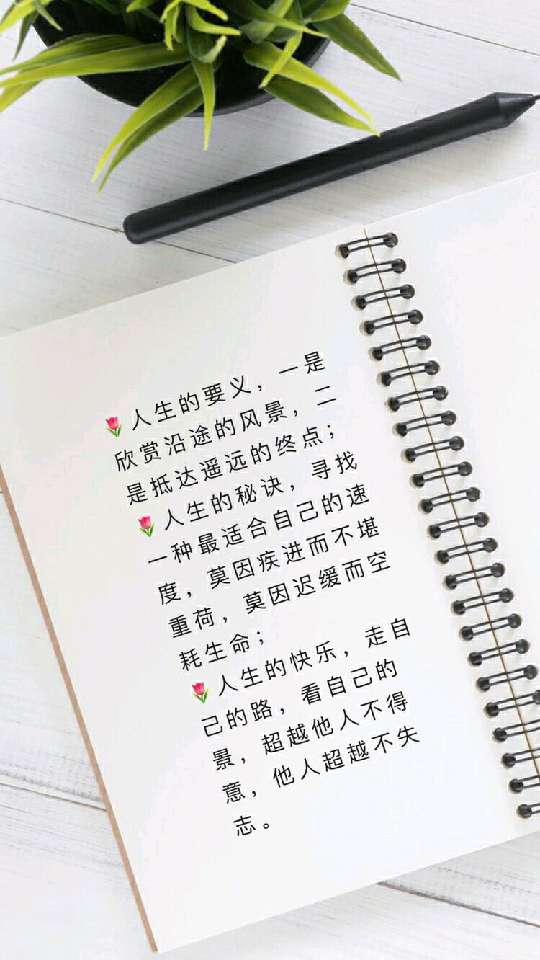 🌷人生的要义，一是
欣赏沿途的风景，二
是抵达遥远的终点；
🌷人生的秘诀，寻找
一种最适合自己的速
度，莫因疾进而不堪
重荷，莫因迟缓而空
耗生命；
🌷人生的快乐，走自
己的路，看自己的
景，超越他人不得
意，他人超越不失
志。